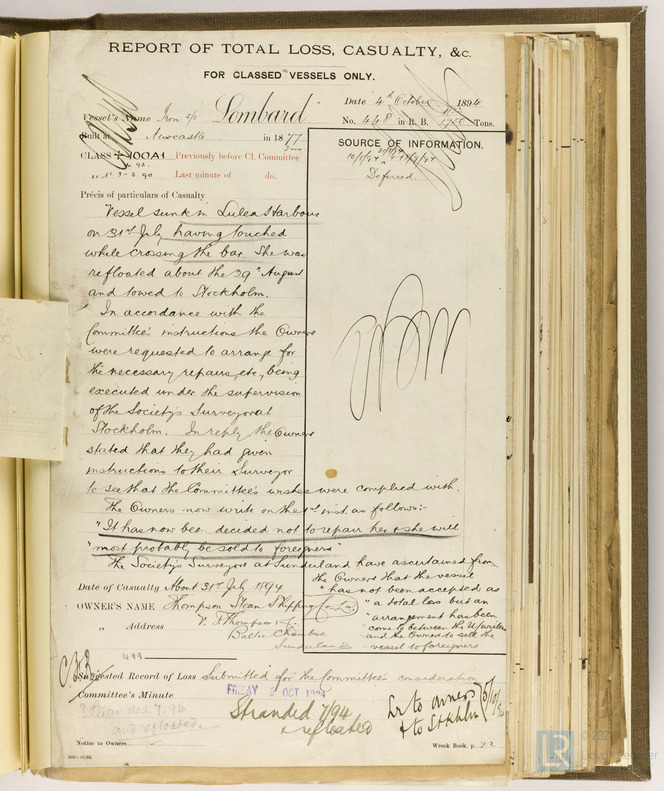 REPORT OF TOTAL LOSS, CASUALTY, &c.
FOR CLASSED VESSELS ONLY.
Date 4th October 1894
Vessel's Name Iron s/s Lombard
No. 448 in R. B. Tons.
Built at Newcastle in 1877
SOURCE OF INFORMATION.
CLASS 100A1 Previously before Cl. Committee
Last minute of do.
Deferred
Précis of particulars of Casualty
Vessel sunk in Lulea Harbour
on 31st July, having touched
while crossing the bar. She was
refloated about the 29th August
and towed to Stockholm.
In accordance with the
Committee's instructions the Owners
were requested to arrange for
the necessary repairs, etc., being
executed under the supervision
of the Society's Surveyor at
Stockholm. In reply the Owners
stated that they had given
instructions to their Surveyor
to see that the Committee's wishes were complied with.
The Owners now write on the 1st inst. as follows:-
"It has now been decided not to repair her & she will
"most probably be sold to foreigners"
The Society's Surveyors at Sunderland have ascertained from
the Owners that the vessel
"has not been accepted as
"a total loss but an
arrangement has been
come to between the U/writers
and the Owners to sell the
vessel to foreigners
Date of Casualty About 31st July 1894
OWNER'S NAME Thompson Steam Shipping Co Ld
" Address Thompson
Baltic Chambers
Sunderland
499
Suggested Record of Loss Submitted for the Committee's consideration
Committee's Minute FRIDAY 5 OCT 1894
Stranded 7.94
and refloated.
Stranded 7/94
& refloated
Lr to owners
& to Stkhlm
5/10/94
Notice to Owners
Wreck Book, p. 72
LR
© 2021